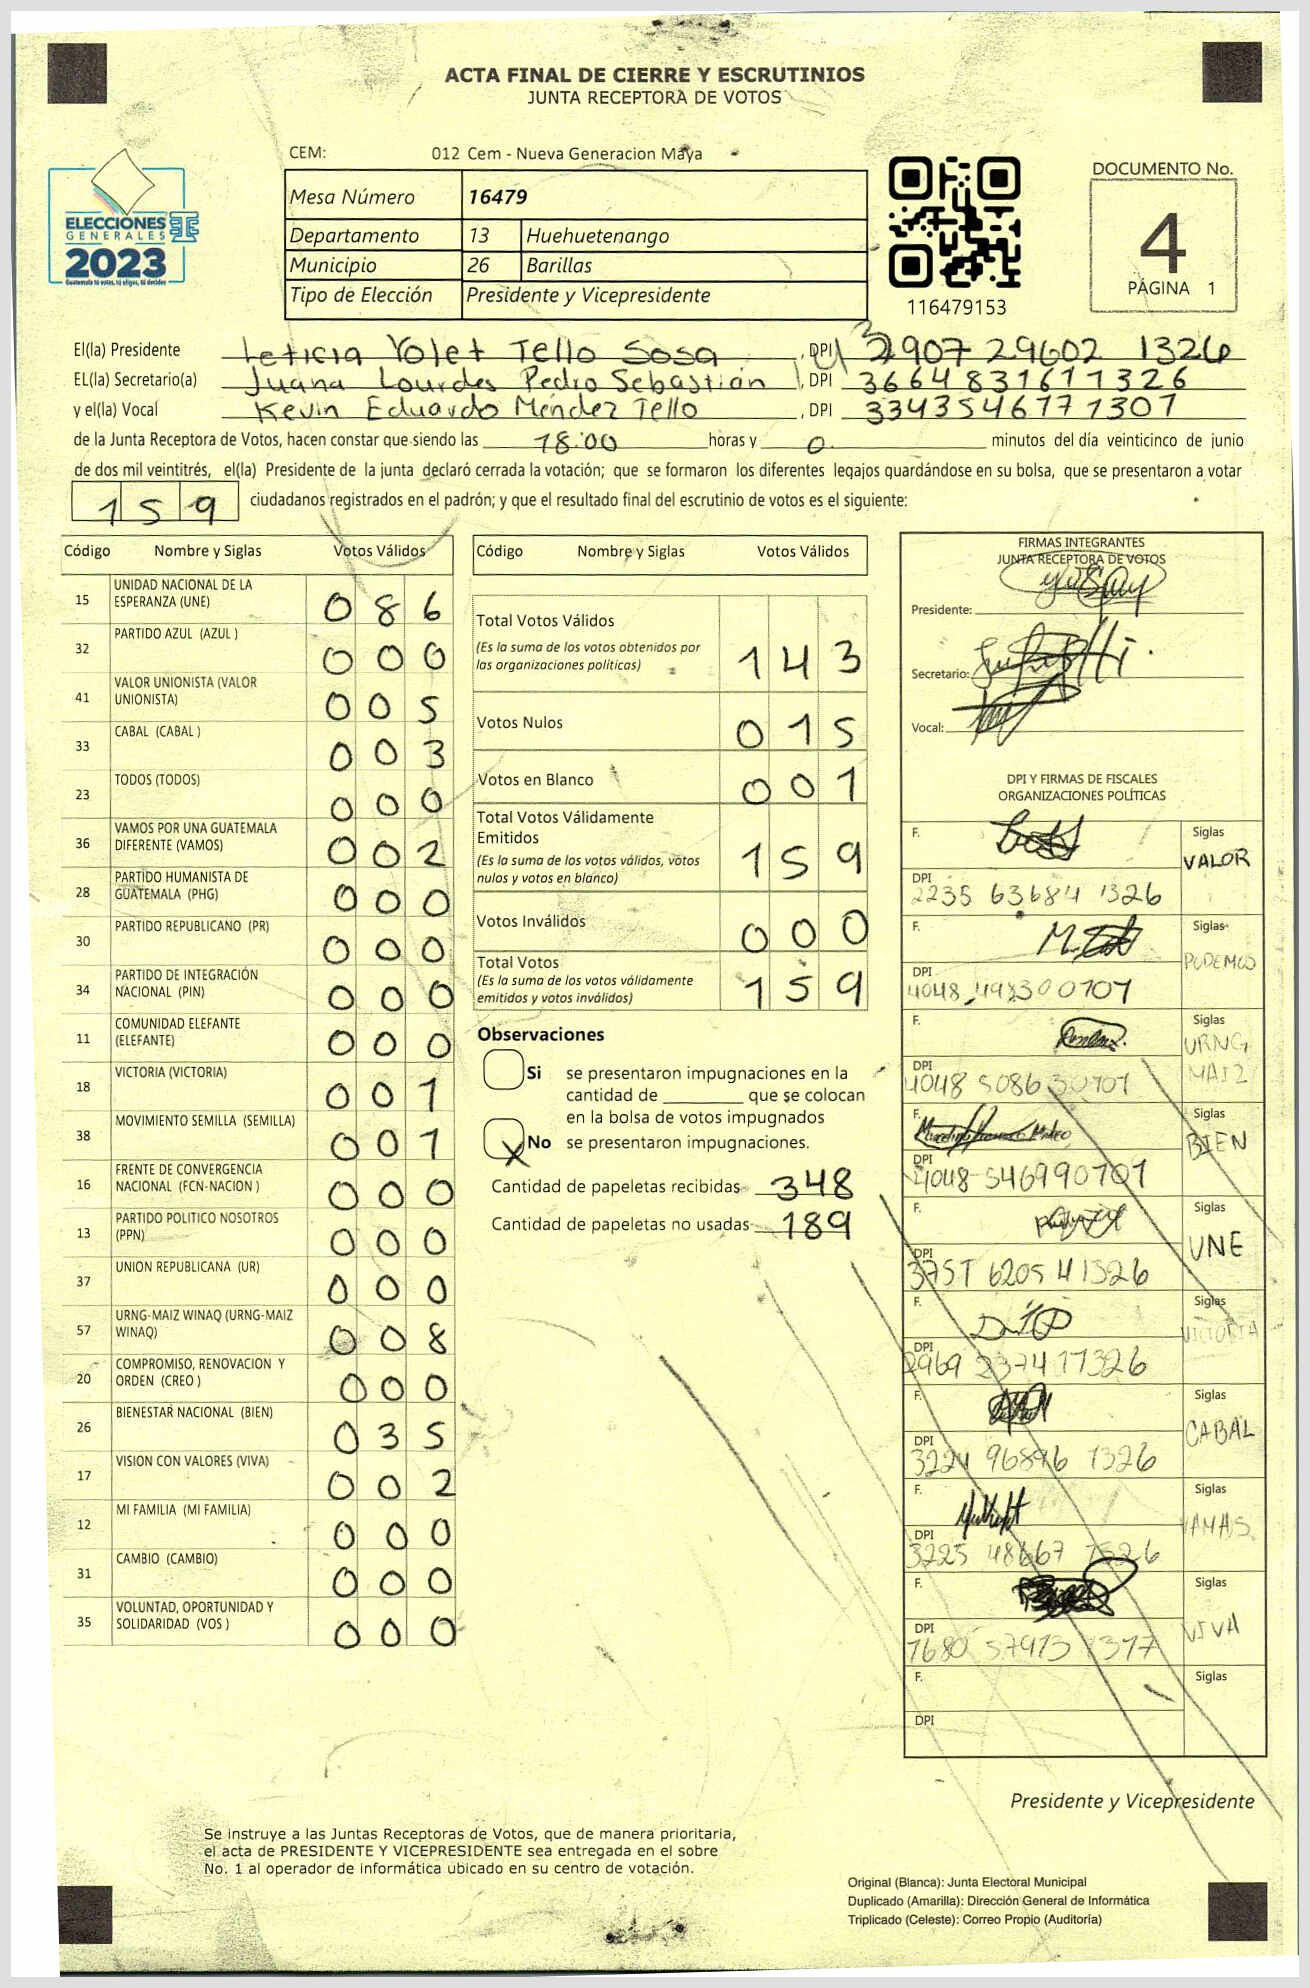 ACTA FINAL DE CIERRE Y ESCRUTINIOS
JUNTA RECEPTORA DE VOTOS
CEM: 012 Cem - Nueva Generacion Maya
Mesa Número 16479
Departamento 13 Huehuetenango
Municipio 26 Barillas
Tipo de Elección Presidente y Vicepresidente
ELECCIONES
GENERALES
2023
Guatemala tú votas, tú eliges, tú decides
116479153
DOCUMENTO No.
4
PÁGINA 1
El(la) Presidente Leticia Yolet Tello Sosa, DPI 2907 29602 1326
EL(la) Secretario(a) Juana Lourdes Pedro Sebastián, DPI 3664831611326
y el(la) Vocal Kevin Eduardo Méndez Tello, DPI 3343546171301
de la Junta Receptora de Votos, hacen constar que siendo las 18:00 horas y 0 minutos del día veinticinco de junio
de dos mil veintitrés, el(la) Presidente de la junta declaró cerrada la votación; que se formaron los diferentes legajos guardándose en su bolsa, que se presentaron a votar
159 ciudadanos registrados en el padrón; y que el resultado final del escrutinio de votos es el siguiente:
Código Nombre y Siglas Votos Válidos
15 UNIDAD NACIONAL DE LA ESPERANZA (UNE) 086
32 PARTIDO AZUL (AZUL ) 000
41 VALOR UNIONISTA (VALOR UNIONISTA) 005
33 CABAL (CABAL ) 003
23 TODOS (TODOS) 000
36 VAMOS POR UNA GUATEMALA DIFERENTE (VAMOS) 002
28 PARTIDO HUMANISTA DE GUATEMALA (PHG) 000
30 PARTIDO REPUBLICANO (PR) 000
34 PARTIDO DE INTEGRACIÓN NACIONAL (PIN) 000
11 COMUNIDAD ELEFANTE (ELEFANTE) 000
18 VICTORIA (VICTORIA) 001
38 MOVIMIENTO SEMILLA (SEMILLA) 001
16 FRENTE DE CONVERGENCIA NACIONAL (FCN-NACION ) 000
13 PARTIDO POLITICO NOSOTROS (PPN) 000
37 UNION REPUBLICANA (UR) 000
57 URNG-MAIZ WINAQ (URNG-MAIZ WINAQ) 008
20 COMPROMISO, RENOVACION Y ORDEN (CREO ) 000
26 BIENESTAR NACIONAL (BIEN) 035
17 VISION CON VALORES (VIVA) 002
12 MI FAMILIA (MI FAMILIA) 000
31 CAMBIO (CAMBIO) 000
35 VOLUNTAD, OPORTUNIDAD Y SOLIDARIDAD (VOS ) 000
Código Nombre y Siglas Votos Válidos
Total Votos Válidos
(Es la suma de los votos obtenidos por las organizaciones políticas) 143
Votos Nulos 015
Votos en Blanco 001
Total Votos Válidamente Emitidos
(Es la suma de los votos válidos, votos nulos y votos en blanco) 159
Votos Inválidos 000
Total Votos
(Es la suma de los votos válidamente emitidos y votos inválidos) 159
Observaciones
Si se presentaron impugnaciones en la
cantidad de ________ que se colocan
en la bolsa de votos impugnados
X No se presentaron impugnaciones.
Cantidad de papeletas recibidas 348
Cantidad de papeletas no usadas 189
FIRMAS INTEGRANTES
JUNTA RECEPTORA DE VOTOS
Presidente:
Secretario:
Vocal:
DPI Y FIRMAS DE FISCALES
ORGANIZACIONES POLÍTICAS
F. Siglas VALOR
DPI 2235 63684 1326
F. Siglas PODEMOS
DPI
F. Siglas URNG MAIZ
DPI
F. Siglas BIEN
DPI 4048 546990101
F. Siglas UNE
DPI
F. Siglas VICTORIA
DPI
F. Siglas CABAL
DPI
F. Siglas VAMAS
DPI
F. Siglas VIVA
DPI
F. Siglas
DPI
Presidente y Vicepresidente
Se instruye a las Juntas Receptoras de Votos, que de manera prioritaria,
el acta de PRESIDENTE Y VICEPRESIDENTE sea entregada en el sobre
No. 1 al operador de informática ubicado en su centro de votación.
Original (Blanca): Junta Electoral Municipal
Duplicado (Amarilla): Dirección General de Informática
Triplicado (Celeste): Correo Propio (Auditoría)